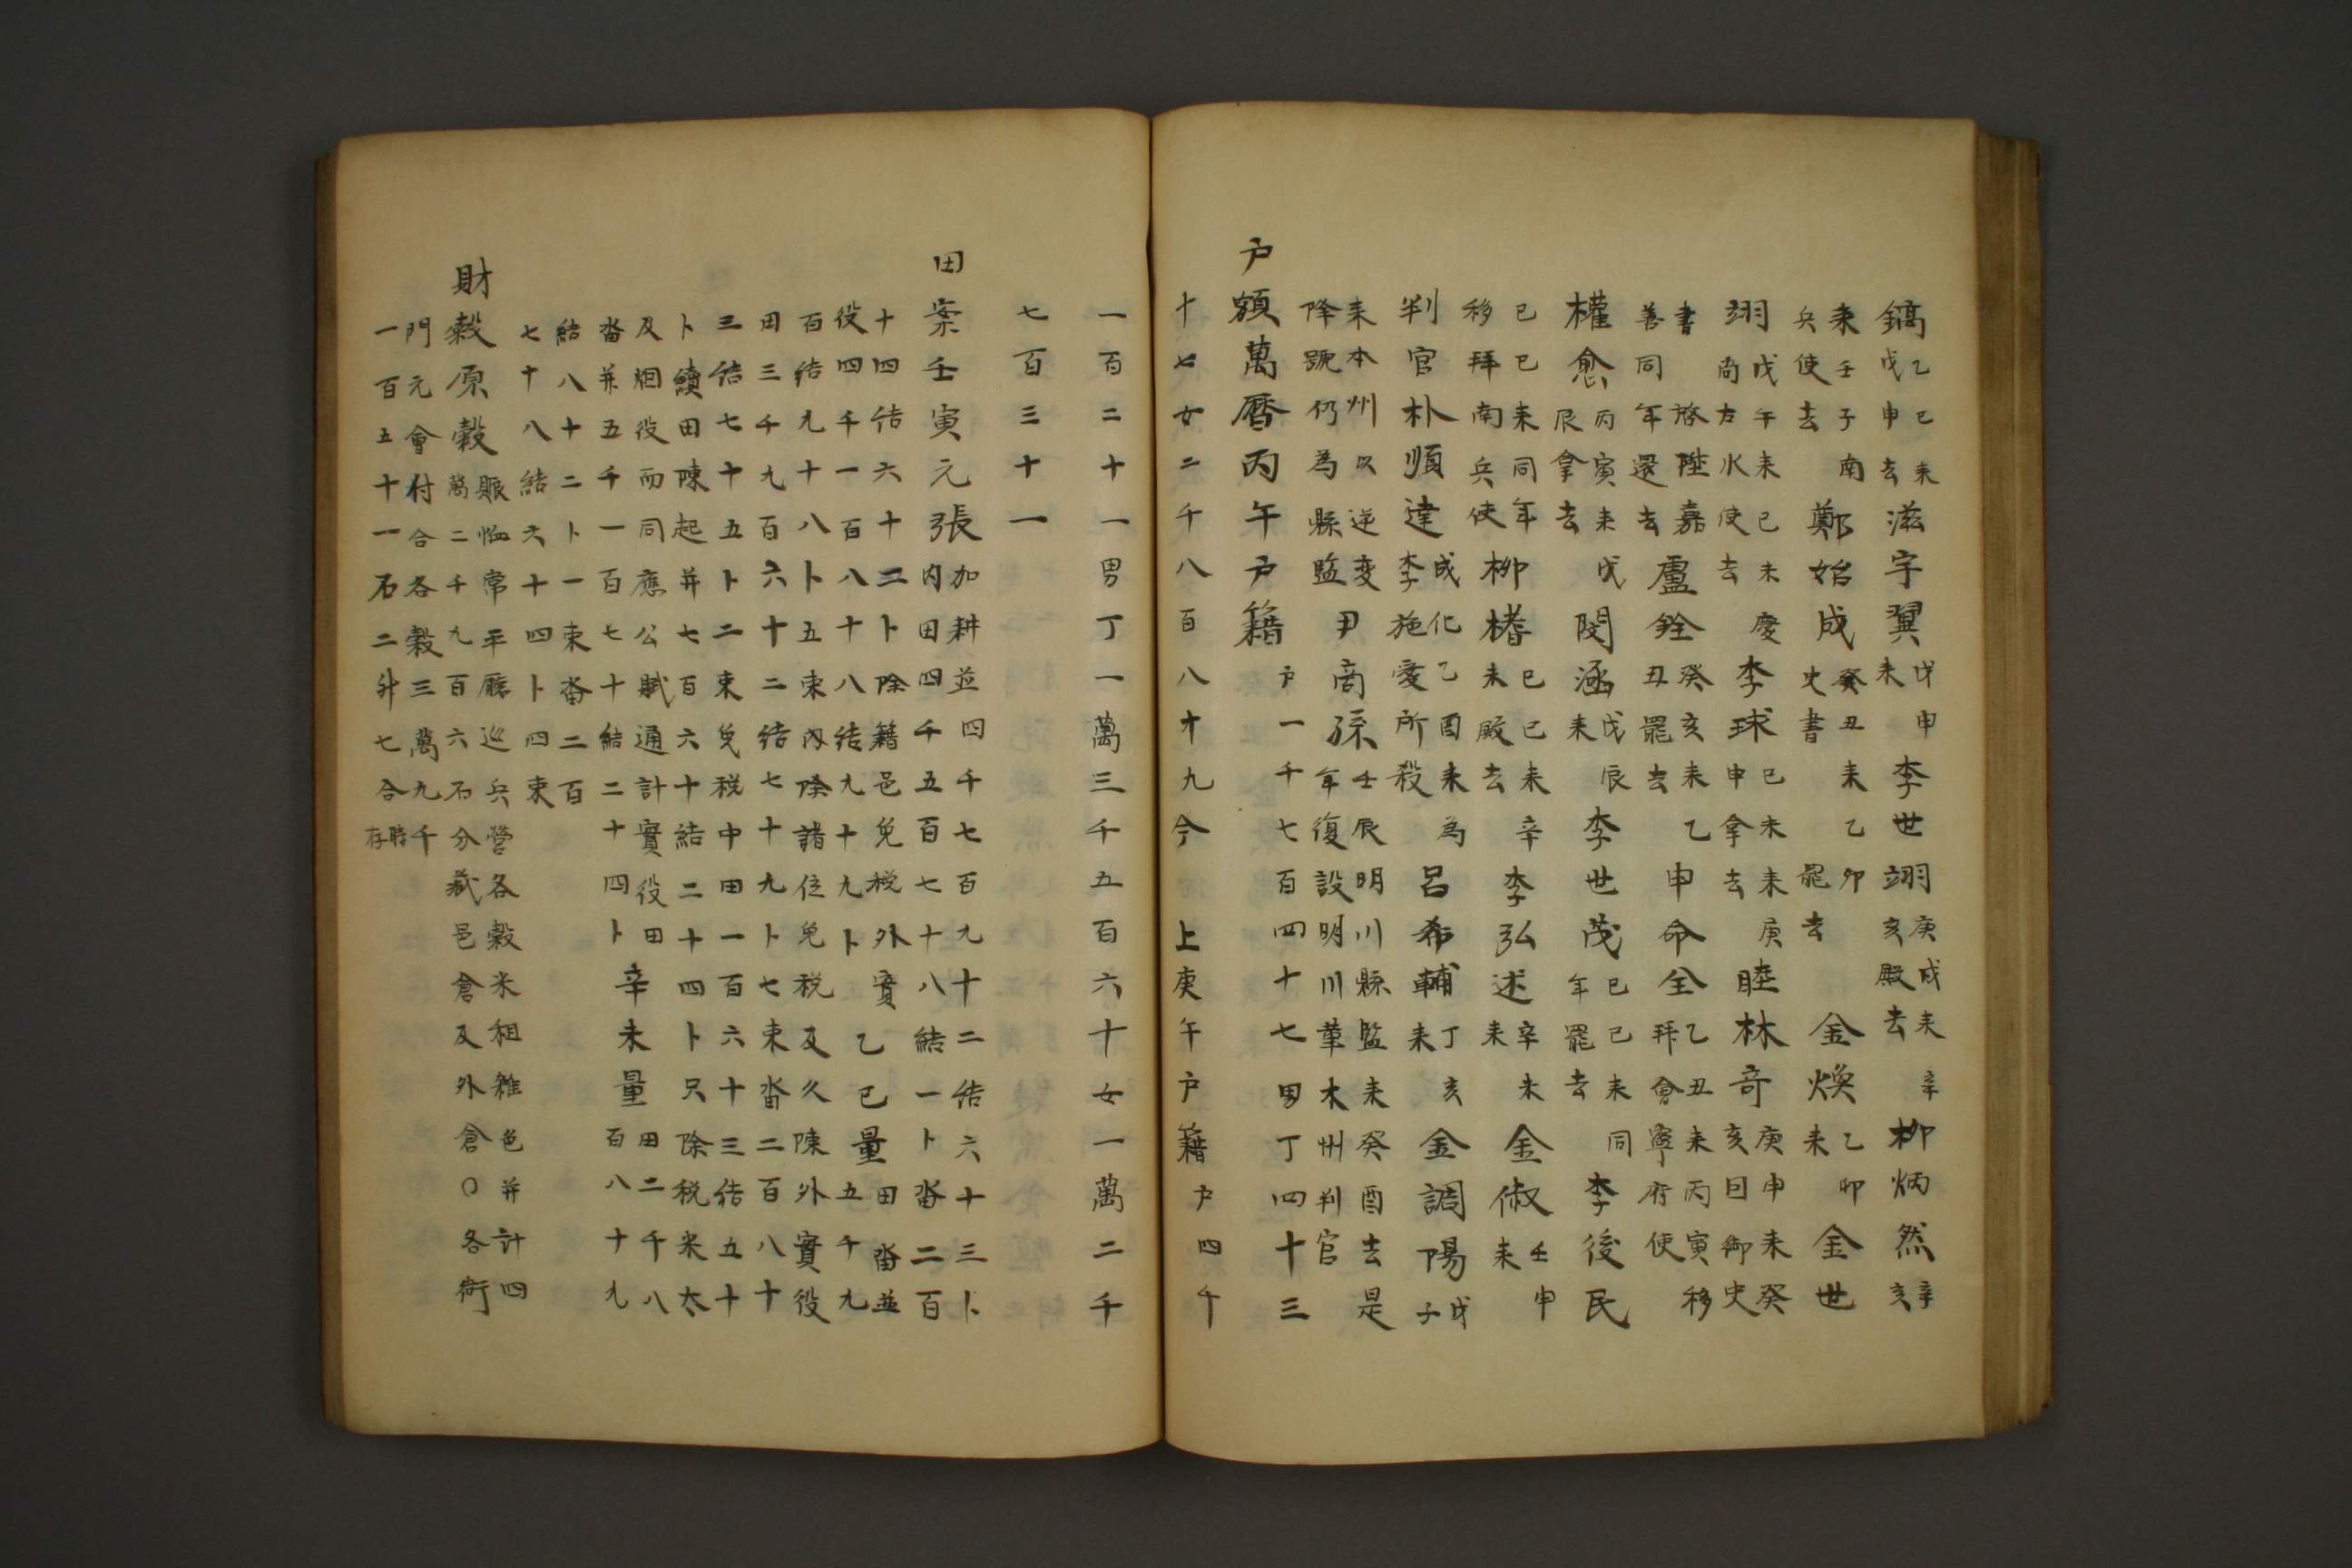 鎬乙巳来戊申去滋宇翼戊申未李世翊庚戌来辛亥殿去柳炳然辛亥
来壬子南兵使去鄭始成癸丑来乙卯史書罷去金煥乙卯来金世
翊戊午来己未慶尚左水使去李球己未来庚申拿去睦林奇庚申来癸亥日御史
書啓陞嘉善同年還去盧銓癸亥来乙丑罷去申命全乙丑来丙寅移拜會寧府使
權愈丙寅来戊辰拿去閔涵戊辰来李世茂己巳来同年罷去李後民
己巳来同年移拜南兵使柳榰己巳来辛未殿去李弘述辛未来金俶壬申来
判官朴順達成化乙酉来為李施愛所殺呂希輔丁亥来金調陽戊子
来本州以逆変降號仍為縣監尹商孫壬辰明川縣監来癸酉去是年復設明川革木州判官
户額萬曆丙午户籍户一千七百四十七男丁四十三
十七女二千八百八十九今上庚午户籍户四千
一百二十一男丁一萬三千五百六十女一萬二千
七百三十一
田案壬寅元張加耕並四千七百九十二结六十三卜内田四千五百七十八結一卜畓二百
十四结六十二卜除籍邑免税外實役四千一百八十八结九十九卜乙巳量田畓並五千九
百结九十八卜五束内除諸位免税及久陳外實役田三千九百六十二结七十九卜七束畓二百八十
三结七十五卜二束免税中田一百六十三结五十卜續田陳起并七百六十結二十四卜只除税米太
及烟役而同應公賦通計實役田畓并五千一百七十結二十四卜辛未量田二千八百八十九
結八十二卜一束畓二百七十八結六十四卜四束
財穀原穀賑恤常平廳巡兵營各穀米租雜色并計四萬二千九百六石分藏邑倉及外倉○各衙
門元會付合各穀三萬九千一百五十一石二升七合時存